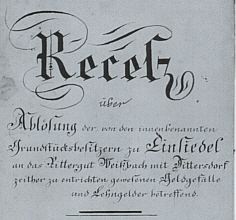 Receſz
über
Ablöſung der von den innenbenannten
Grundſtücksbeſitzern zu Einſiedel
an das Rittergut Weiſbach mit Dittersdorf
zeither zu entrichten geweſenen Geldgefälle
und Lehngelder betreffend.